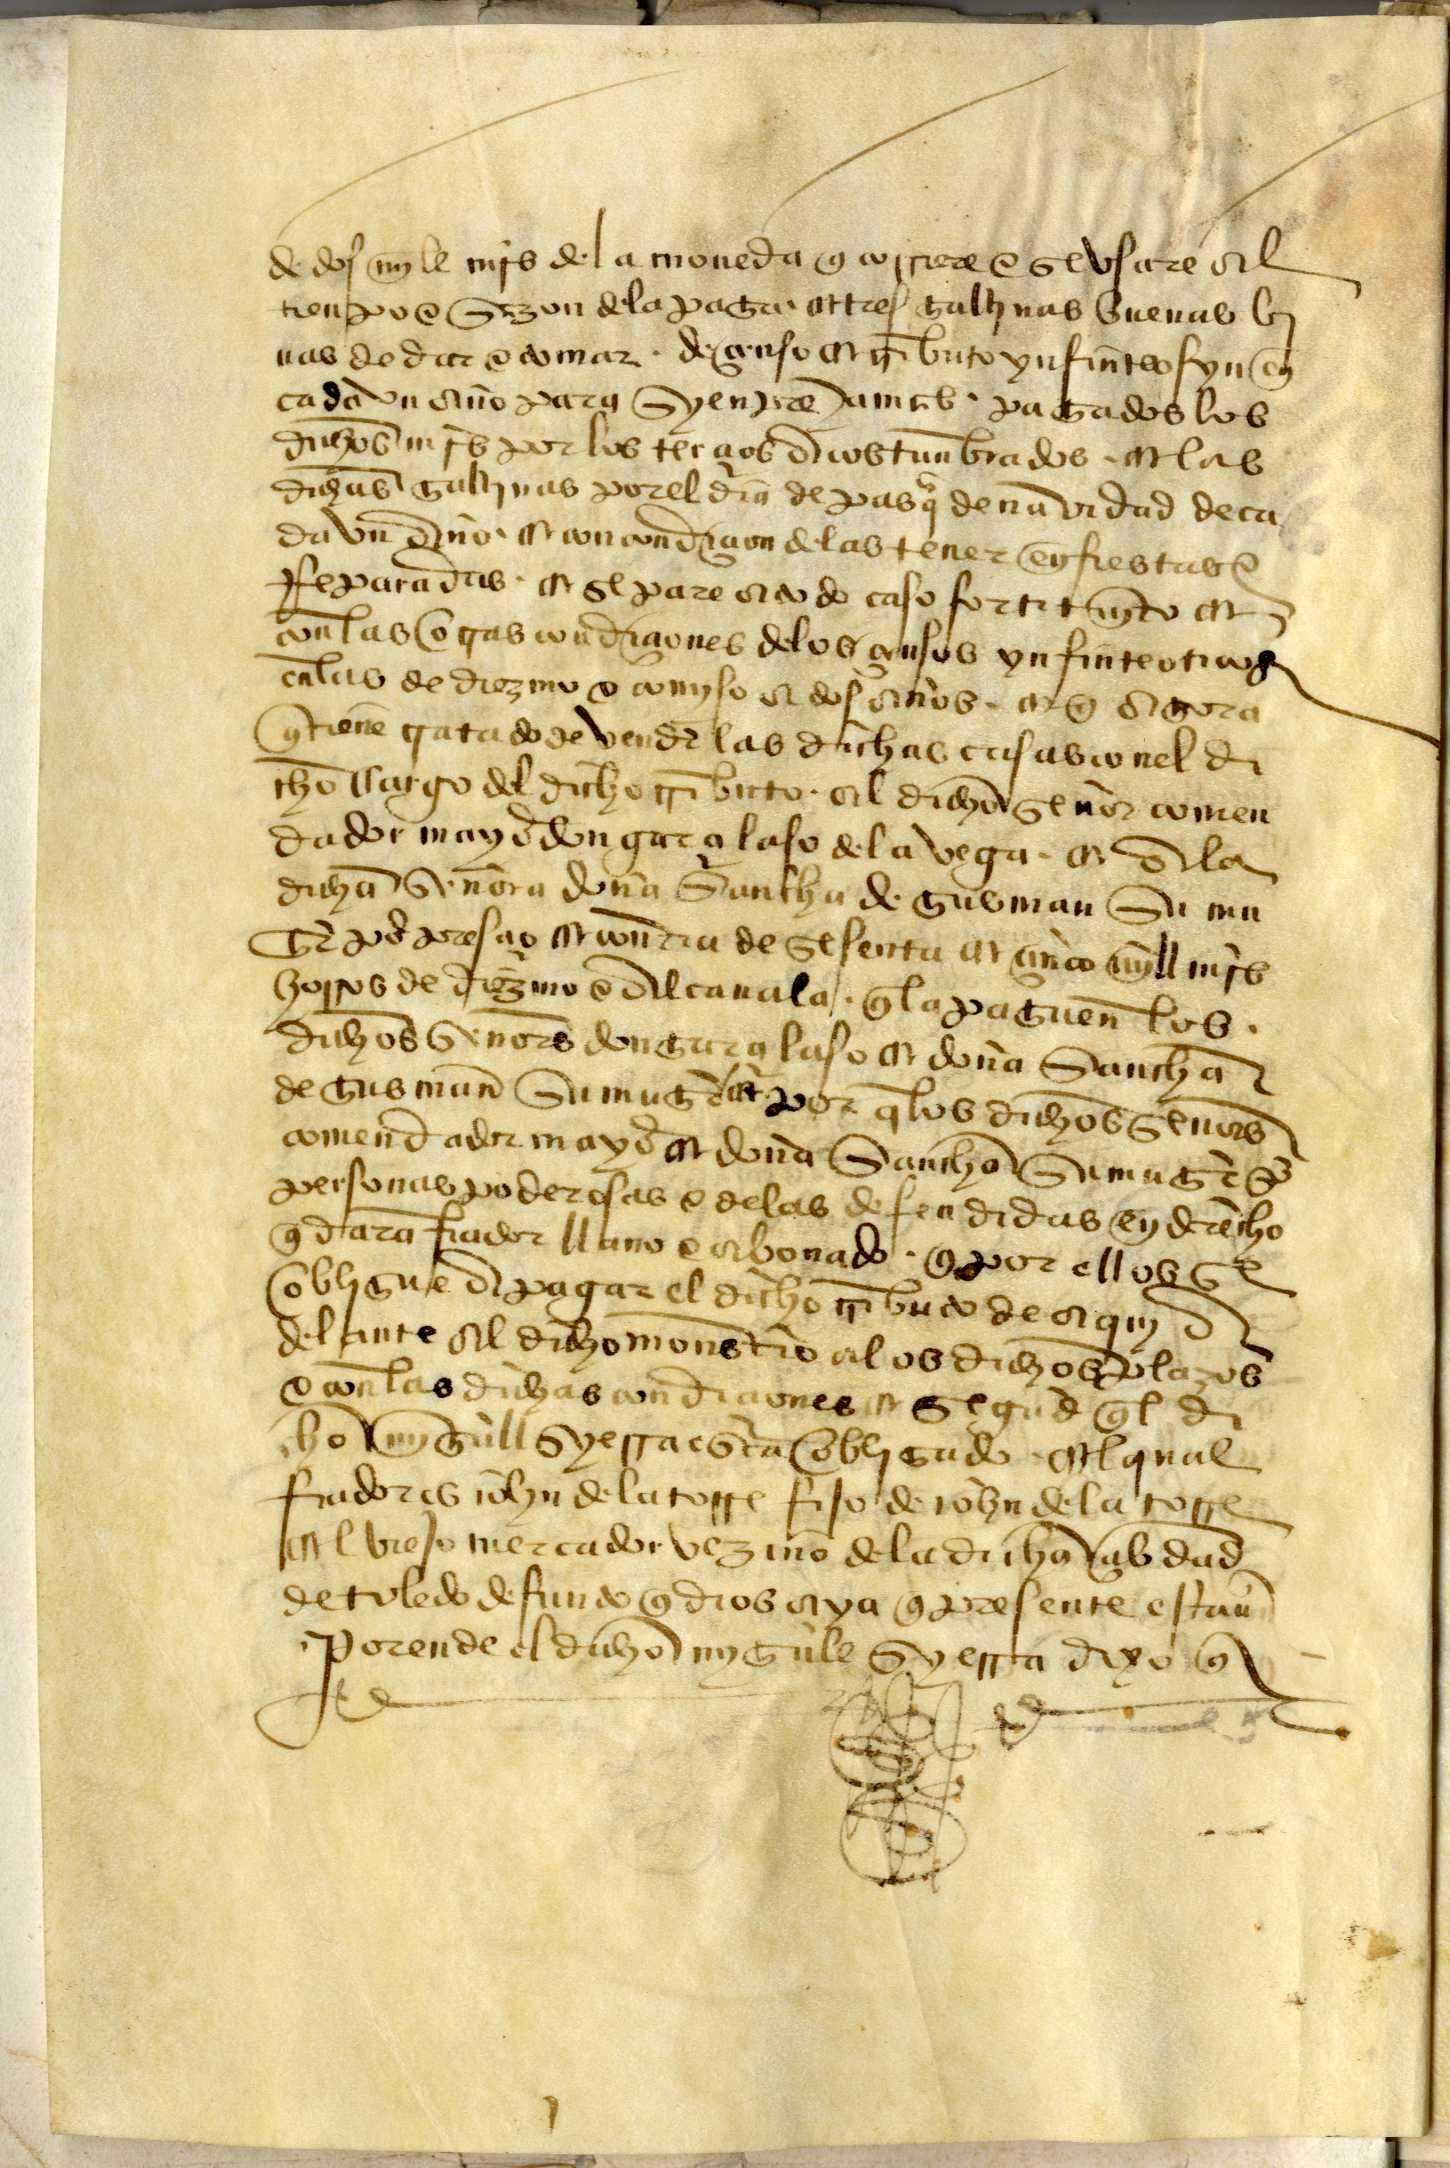 de dos myle mrs de la moneda q corriere e se usare al
tienpo e sazon de la paga. et tres gallinas buenas bi
uas de dar e tomar. de çenso et tributo ynfinteosyn en
cada un año para syenpre jamas. pagados los
dichos mrs por los terçios acostunbrados. et las
dichas gallinas por el dia de pasq de nauidad de ca
da un año. et con condiçion de las tener enfiestas e
reparadas. et se pare a todo caso fortituyto et
con las otras condiçiones de los çensos ynfinteoticos
con las de diezmo e comyso a dos años. et q agora
q tiene tratado de vender las dichas casas con el di
cho cargo del dicho tributo. al dicho señor comen
dador mayor don garçia laso de la vega. et a la
dicha señora doña sancha de gusman su mu
ger por presçio et contia de sesenta et çinco myll mrs
horros de diezmo e alcauala. q la paguen los
dichos señores don garçia laso et doña sancha
de gusman su muger et por q los dichos señores
comendador mayor et doña sancha su muger son
personas poderosas e de las defendidas en derecho
q dara fiador llano e abonado. q por ellos se
obligue a pagar el dicho tributo de aqui a
delante al dicho monesterio a los dichos plazos
e con las dichas condiçiones et segund q el di
cho myguell syerra estaua obligado. et el qual
fiador es iohan de la torre fijo de iohan de la torre
el viejo mercador vezino de la dicha çibdad
de toledo defunto q dios aya q presente estaua
Por ende el dicho myguel syerra dixo q